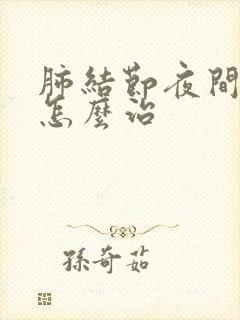 肺結節夜間
怎麼治
孫奇茹